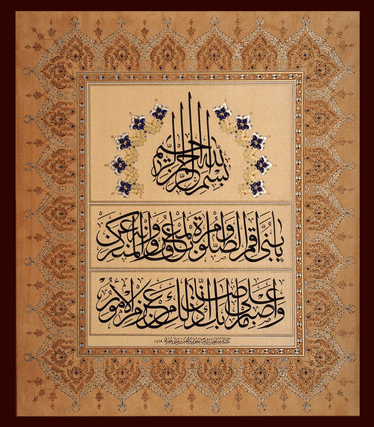 بسم الله الرحمن الرحيم
يا بني أقم الصلوة وأمر بالمعروف وانه عن المنكر
واصبر على ما أصابك إن ذلك من عزم الأمور